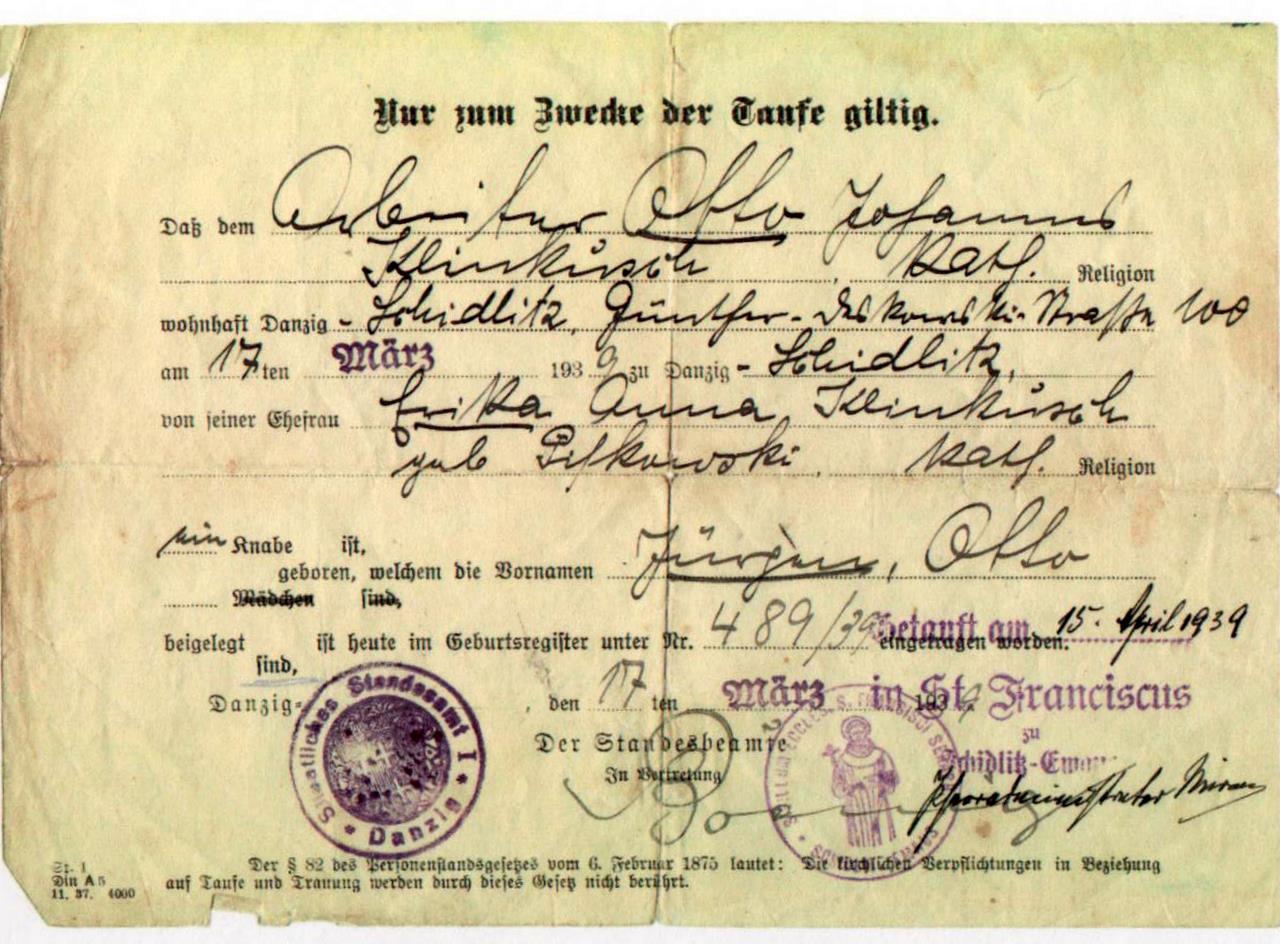 Nur zum Zwecke der Taufe giltig.
Daß dem Arbeiter Otto Johannes
Klinkusch, Kath. Religion
wohnhaft Danzig - Schidlitz, Günther-Straße 100
am 17 ten März 1939 zu Danzig - Schidlitz,
von seiner Ehefrau Erika Anna Klinkusch
geb Kath. Religion
ein Knabe ist,
geboren, welchem die Vornamen Jürgen, Otto
Mädchen sind,
beigelegt ist heute im Geburtsregister unter Nr. 489/39 eingetragen worden.
sind,
Getauft am 15. April 1939
Danzig-, den 17 ten März 1939
in St. Franciscus
zu
Schidlitz-
Der Standesbeamte
In Vertretung
Staatliches Standesamt I
Danzig
Der § 82 des Personenstandsgesetzes vom 6. Februar 1875 lautet: Die kirchlichen Verpflichtungen in Beziehung
auf Taufe und Trauung werden durch dieses Gesetz nicht berührt.
St. 1
Din A 5
11. 37. 4000